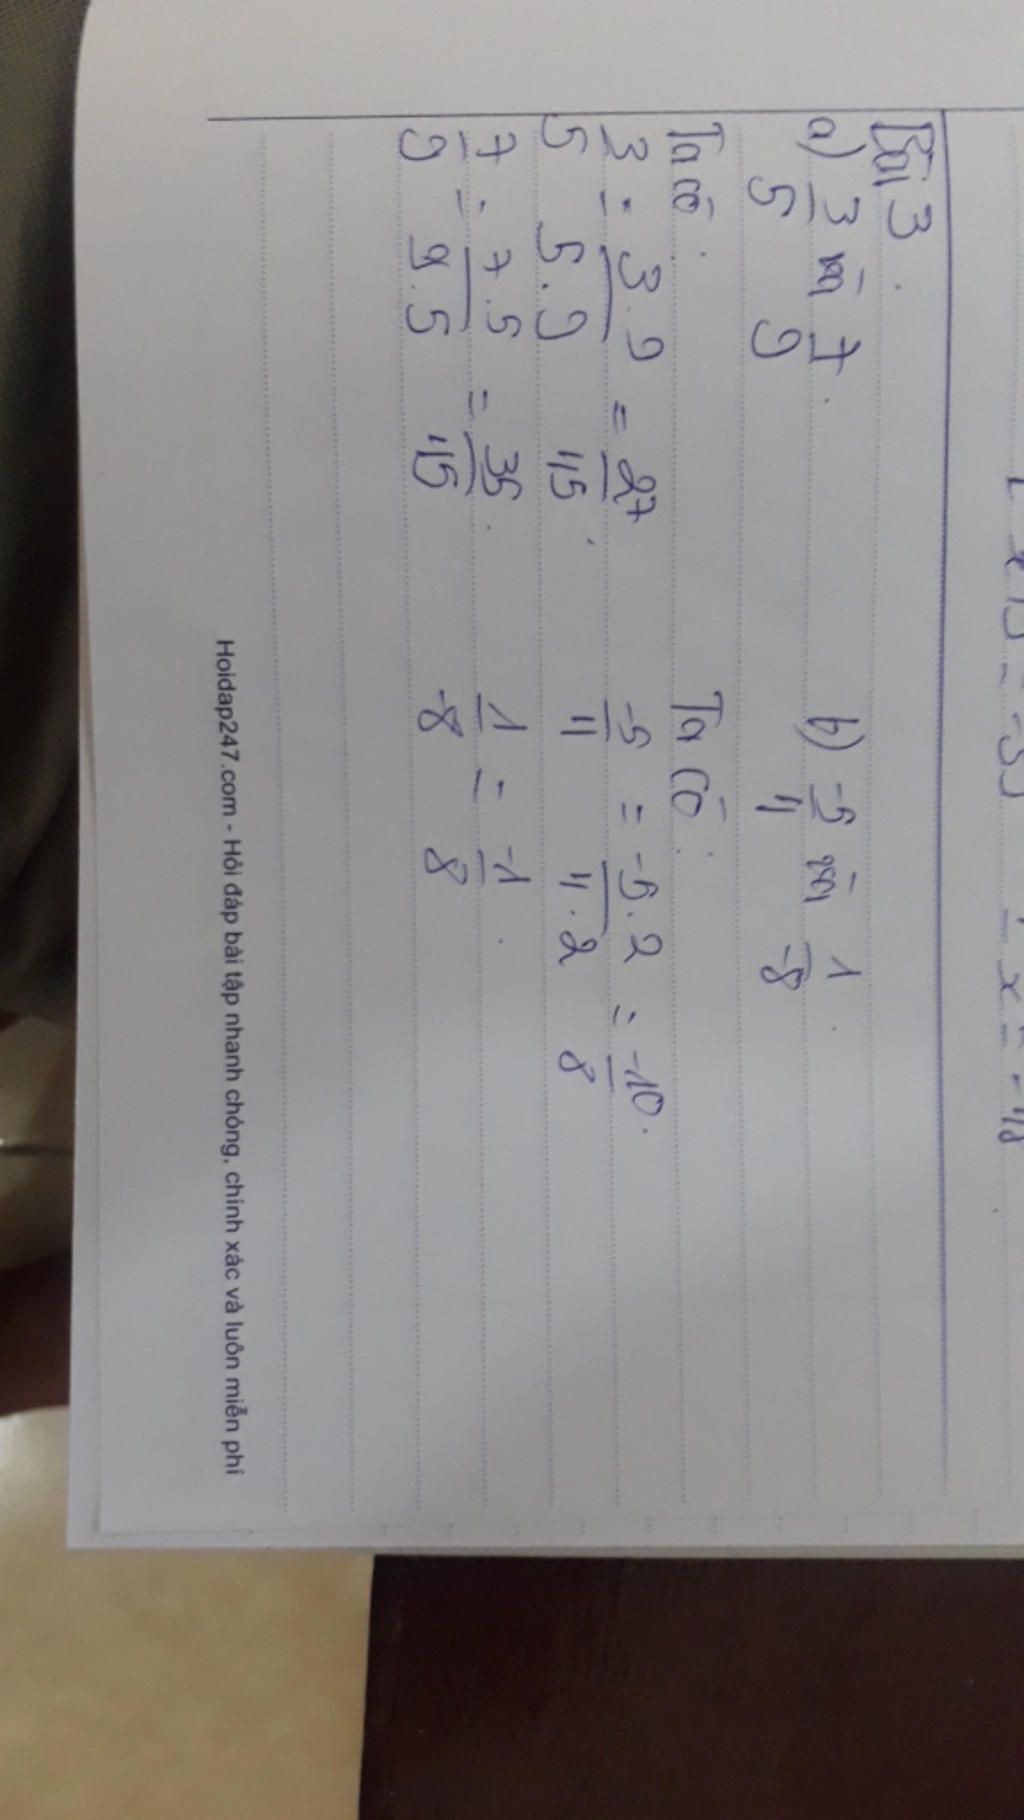 x + 5 = -35
x = -48
Bài 3.
a) 3/5 và 7/9.
Ta có:
3/5 = 3.9/5.9 = 27/45.
7/9 = 7.5/9.5 = 35/45.
b) -5/4 và 1/-8.
Ta có:
-5/4 = -5.2/4.2 = -10/8.
1/-8 = -1/8.
Hoidap247.com - Hỏi đáp bài tập nhanh chóng, chính xác và luôn miễn phí